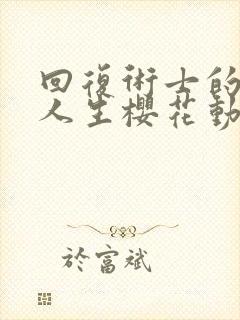 回復術士的
人生櫻花動
於富斌